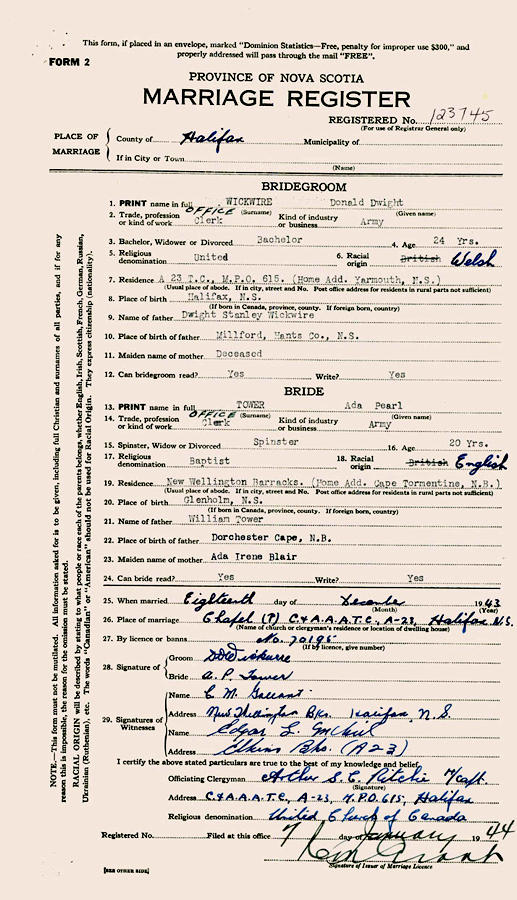 This form, if placed in an envelope, marked "Dominion Statistics—Free, penalty for improper use $300," and
properly addressed will pass through the mail "FREE".
FORM 2
PROVINCE OF NOVA SCOTIA
MARRIAGE REGISTER
REGISTERED No. 123745
(For use of Registrar General only)
PLACE OF MARRIAGE
County of Halifax Municipality of
If in City or Town
(Name)
BRIDEGROOM
1. PRINT name in full WICKWIRE Donald Dwight
(Surname) (Given name)
2. Trade, profession or kind of work OFFICE Clerk Kind of industry or business Army
3. Bachelor, Widower or Divorced Bachelor 4. Age 24 Yrs.
5. Religious denomination United 6. Racial origin British Welsh
7. Residence A 23 T.C., M.P.O. 615. (Home Add. Yarmouth, N.S.)
(Usual place of abode. If in city, street and No. Post office address for residents in rural parts not sufficient)
8. Place of birth Halifax, N.S.
(If born in Canada, province, county. If foreign born, country)
9. Name of father Dwight Stanley Wickwire
10. Place of birth of father Millford, Hants Co., N.S.
11. Maiden name of mother Deceased
12. Can bridegroom read? Yes Write? Yes
BRIDE
13. PRINT name in full TOWER Ada Pearl
(Surname) (Given name)
14. Trade, profession or kind of work OFFICE Clerk Kind of industry or business Army
15. Spinster, Widow or Divorced Spinster 16. Age 20 Yrs.
17. Religious denomination Baptist 18. Racial origin British English
19. Residence New Wellington Barracks. (Home Add. Cape Tormentine, N.B.)
(Usual place of abode. If in city, street and No. Post office address for residents in rural parts not sufficient)
20. Place of birth Glenholm, N.S.
(If born in Canada, province, county. If foreign born, country)
21. Name of father William Tower
22. Place of birth of father Dorchester Cape, N.B.
23. Maiden name of mother Ada Irene Blair
24. Can bride read? Yes Write? Yes
25. When married Eighteenth day of December 1943
(Month) (Year)
26. Place of marriage Chapel (P) C.A.A.A.T.C., A-23, Halifax N.S.
(Name of church or clergyman's residence or location of dwelling house)
27. By licence or banns No. 70195
(If by licence, give number)
28. Signature of
Groom DDWickwire
Bride A. P. Tower
29. Signatures of Witnesses
Name C. M. Gallant
Address New Wellington Bks. Halifax, N.S.
Name Edgar L.
Address Elkins Bks. (A23)
I certify the above stated particulars are true to the best of my knowledge and belief.
Officiating Clergyman Arthur S. C. Ritchie H/Capt.
(Signature)
Address C.A.A.A.T.C., A-23, M.P.O. 615, Halifax
Religious denomination United Church of Canada
Registered No. Filed at this office 7 day of January 1944
Signature of Issuer of Marriage Licence
[SEE OTHER SIDE]
NOTE.—This form must not be mutilated. All information asked for is to be given, including full Christian and surnames of all parties, and if for any
reason this is impossible, the reason for the omission must be stated.
RACIAL ORIGIN will be described by stating to what people or race each of the parents belongs, whether English, Irish, Scottish, French, German, Russian,
Ukrainian (Ruthenian), etc. The words "Canadian" or "American" should not be used for Racial Origin. They express citizenship (nationality).